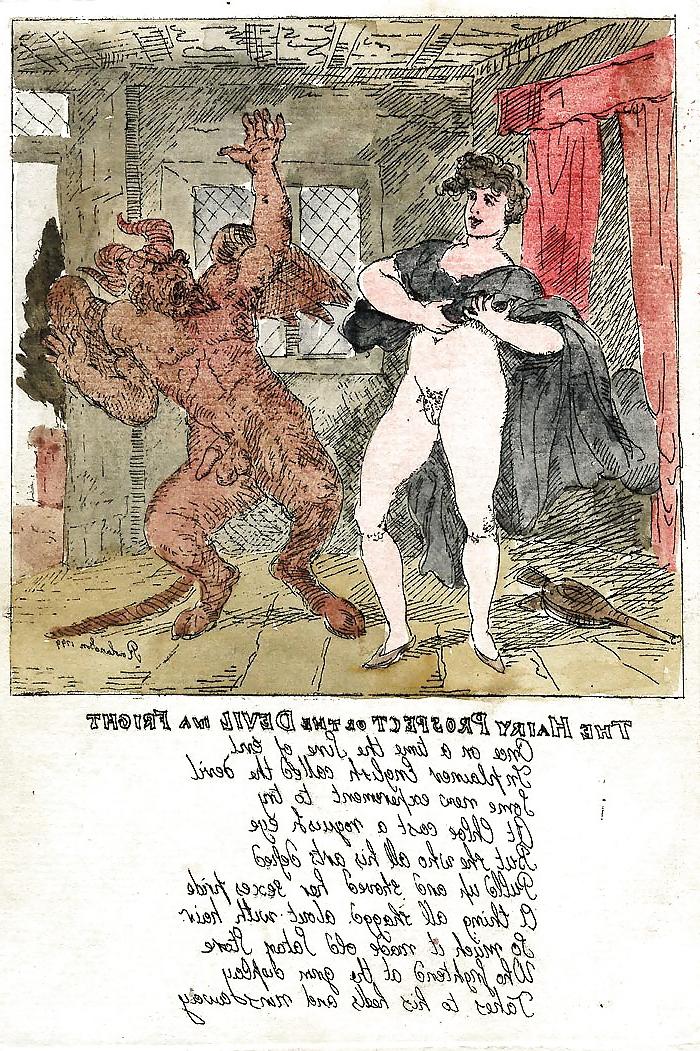 Rowlandson 1799
THE HAIRY PROSPECT OR THE DEVIL IN A FRIGHT
Once on a time the Sire of evil
In plainer English called the devil
Some new experiment to try
At Chloe cast a roguish eye
But she who all his arts defied
Pull'd up and shoved her sexes pride
A thing all shagged about with hair
So much it made old Satan Stare
Who frightend at the grim display
Takes to his heels and runs away